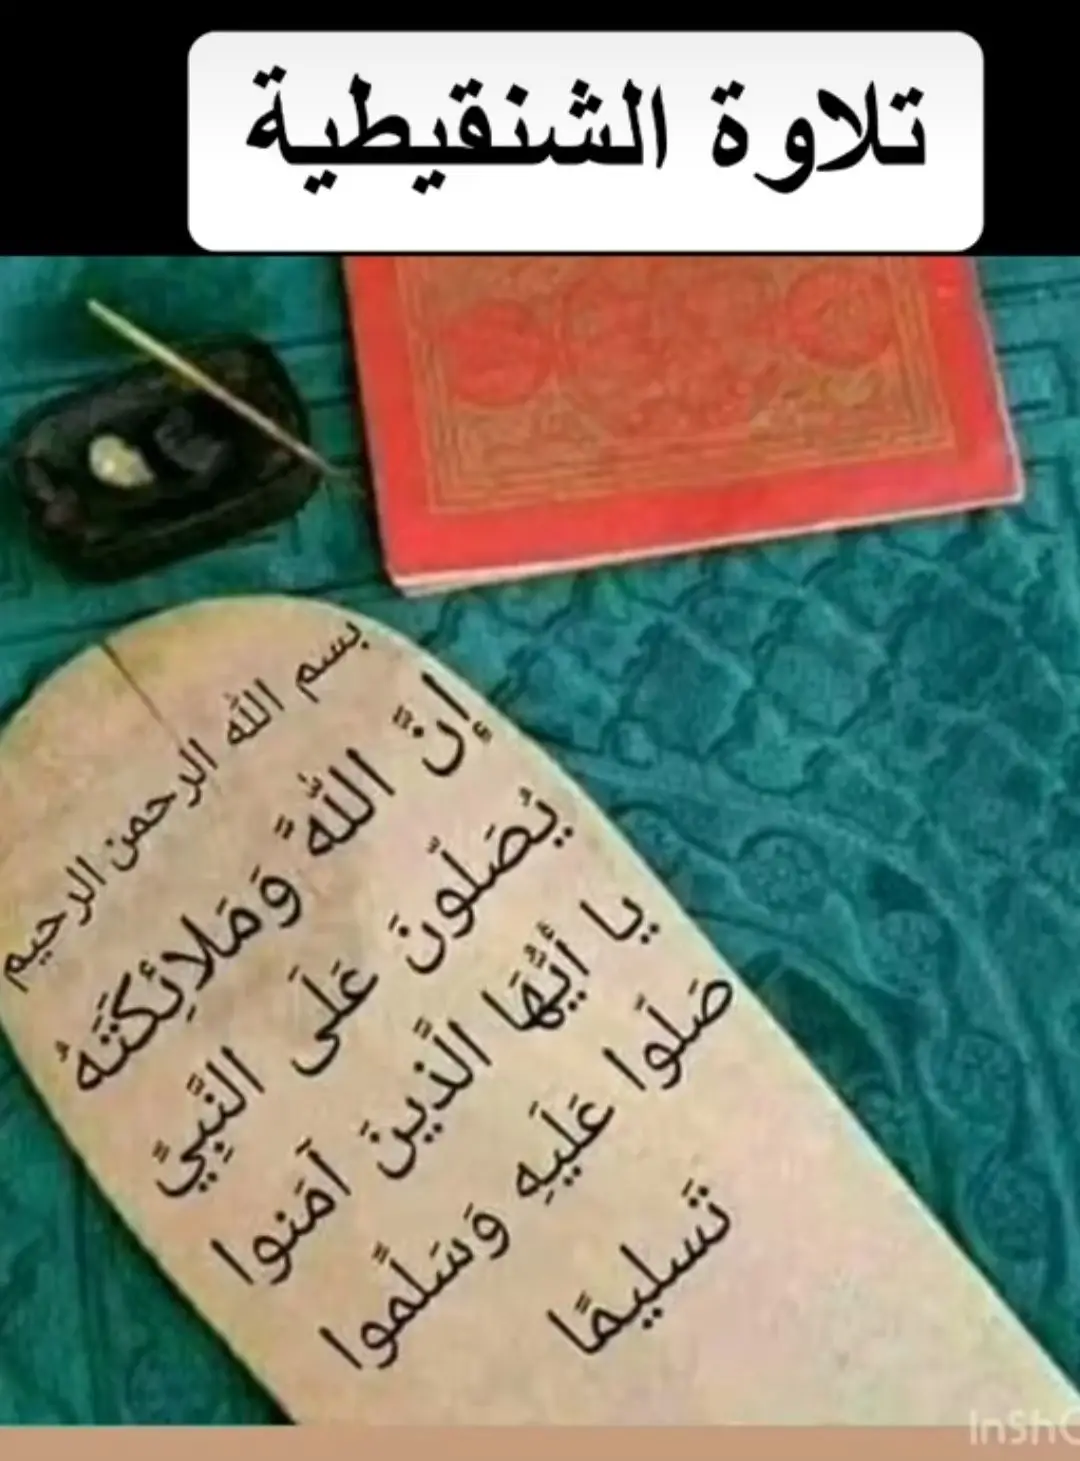 تلاوة الشنقيطية
بسم الله الرحمن الرحيم
إنَّ اللَّهَ وَمَلائِكَتَهُ
يُصَلّونَ عَلَى النَّبِيِّ
يا أَيُّهَا الَّذينَ آمَنوا
صَلّوا عَلَيهِ وَسَلِّموا
تَسليمًا
InSh